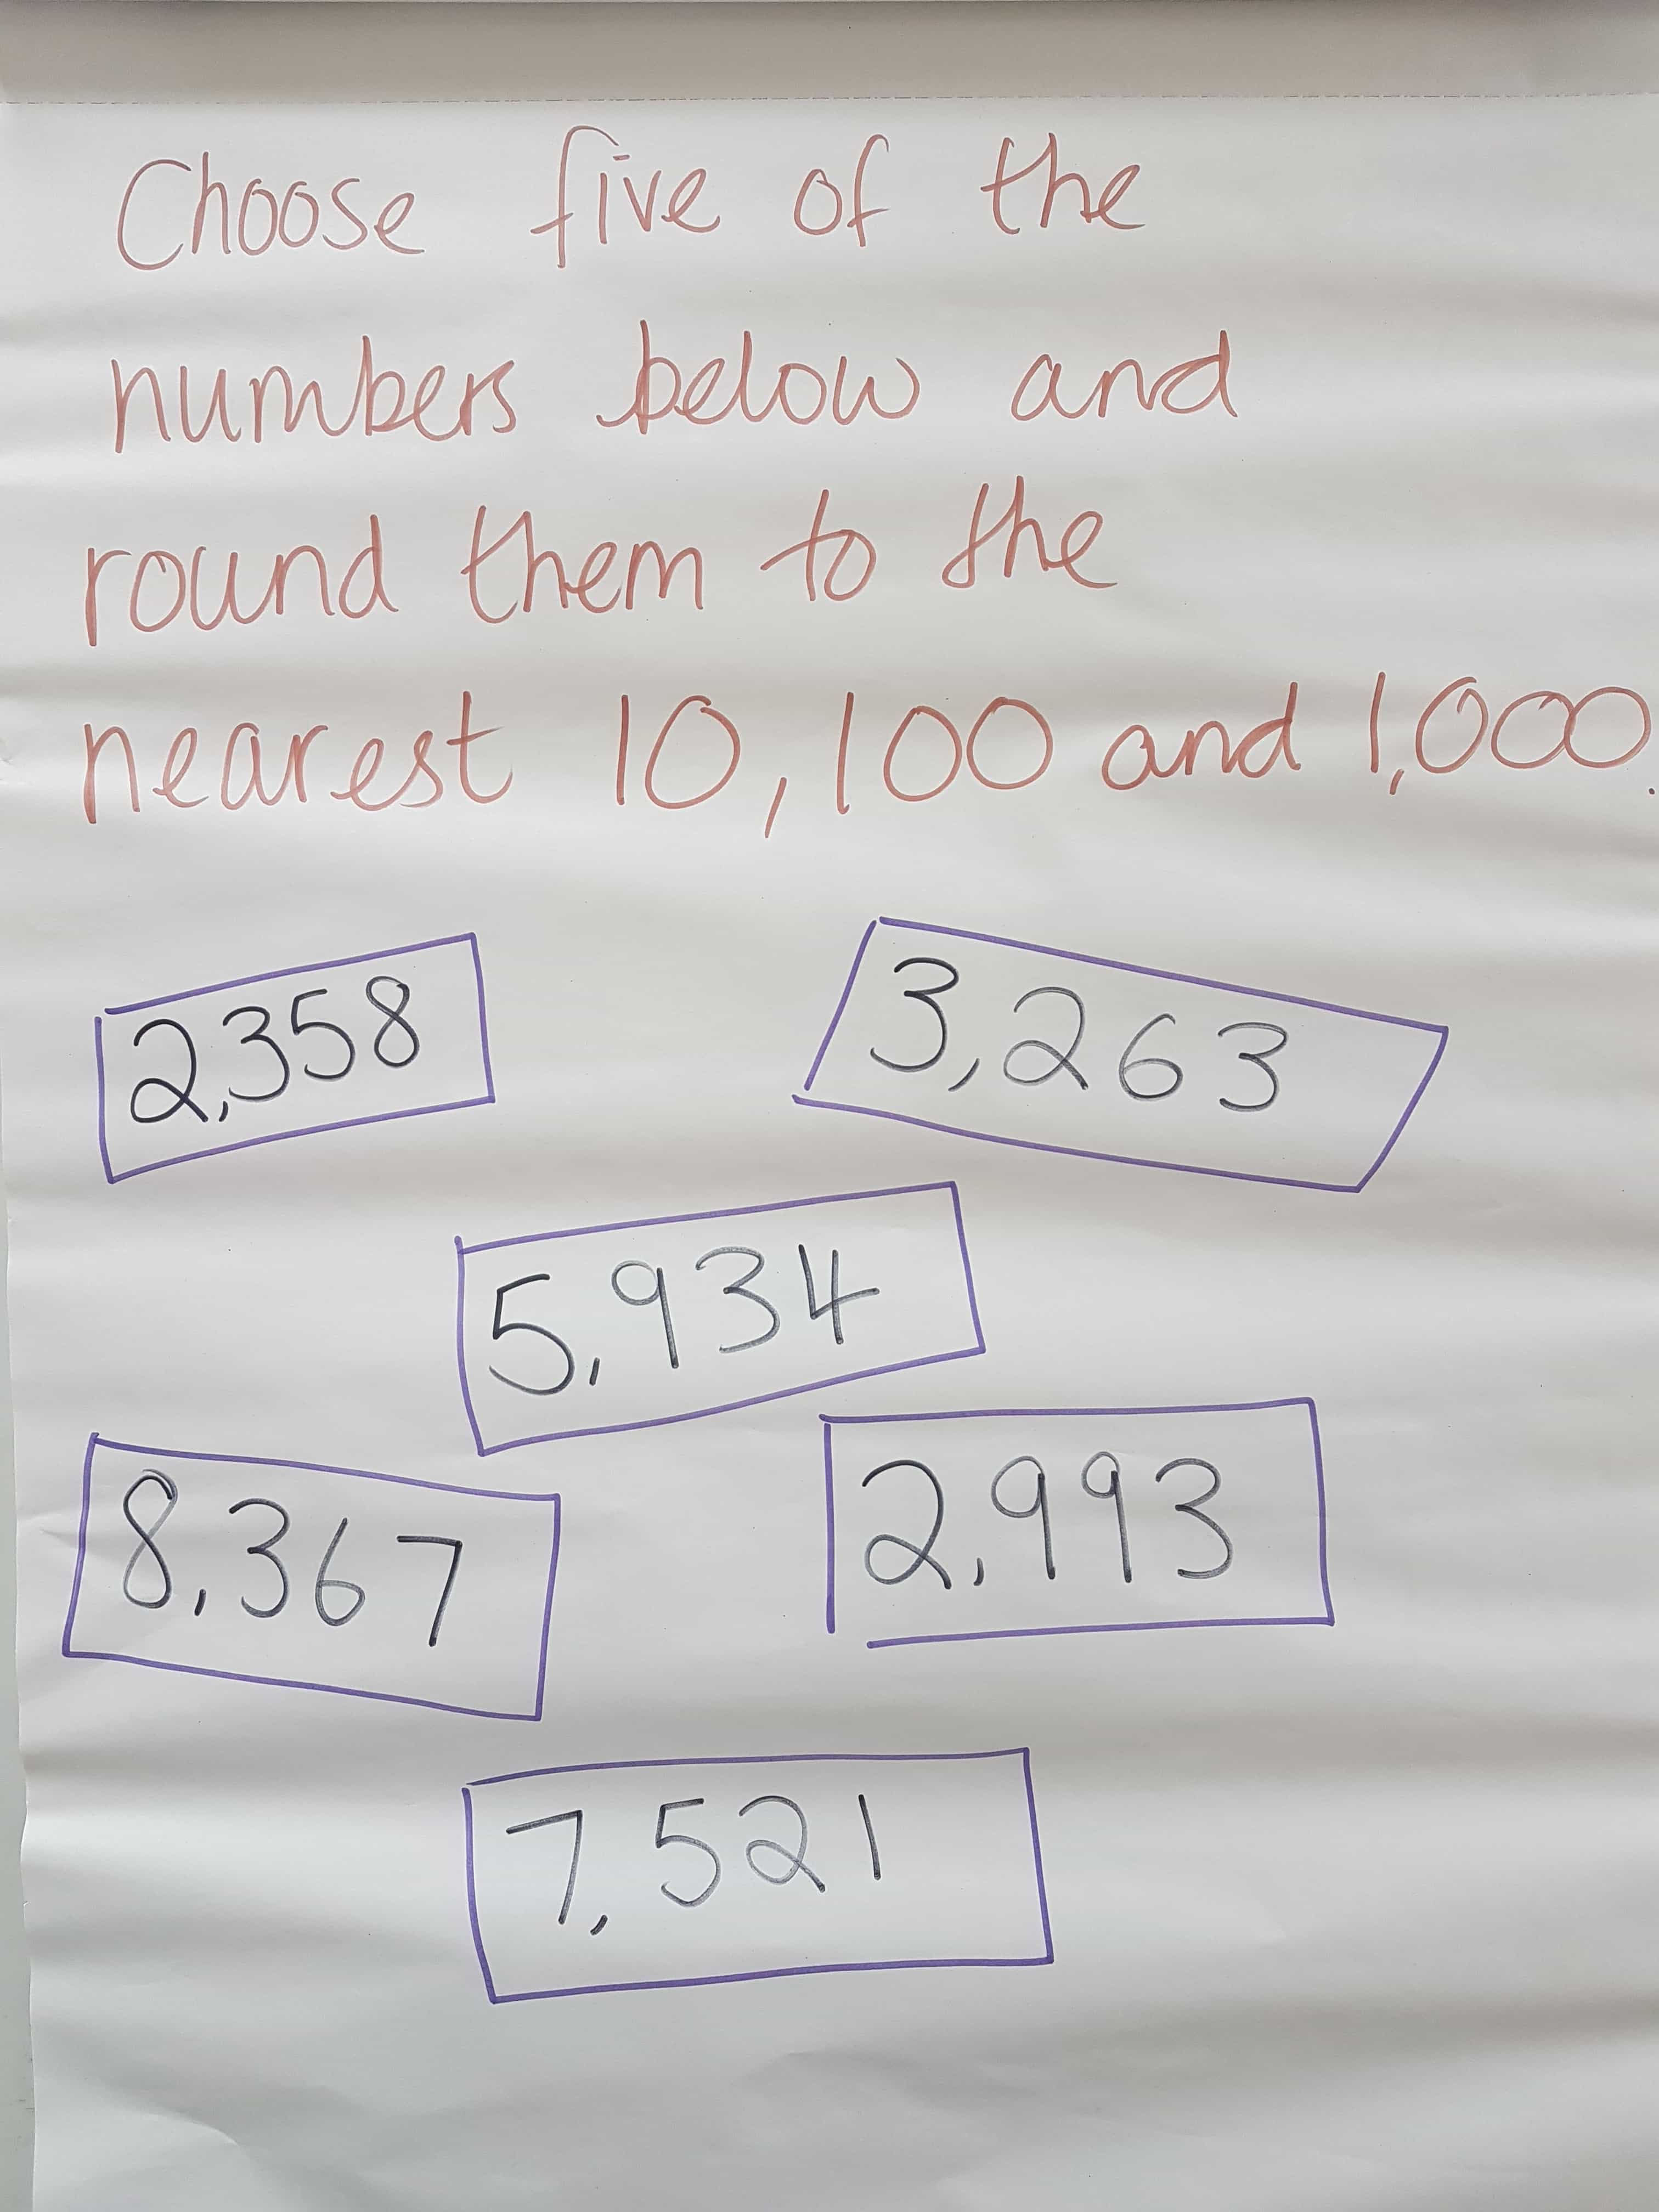 Choose five of the
numbers below and
round them to the
nearest 10, 100 and 1,000.
2,358
3,263
5,934
8,367
2,993
7,521